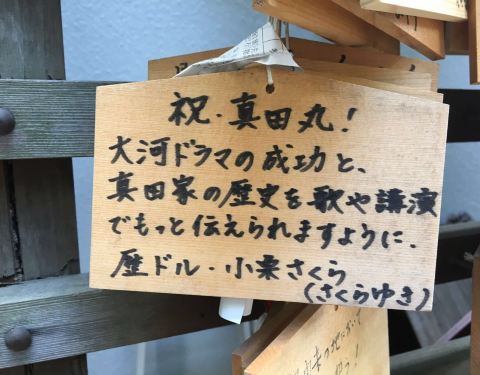 祝・真田丸!
大河ドラマの成功と、
真田家の歴史を歌や講演
でもっと伝えられますように.
歴ドル・小栗さくら
(さくらゆき)